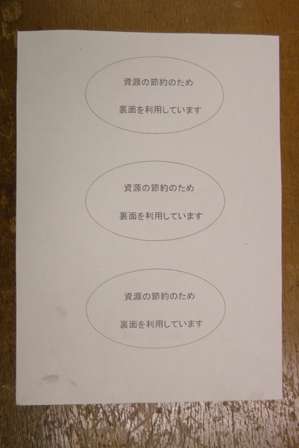 資源の節約のため
裏面を利用しています
資源の節約のため
裏面を利用しています
資源の節約のため
裏面を利用しています